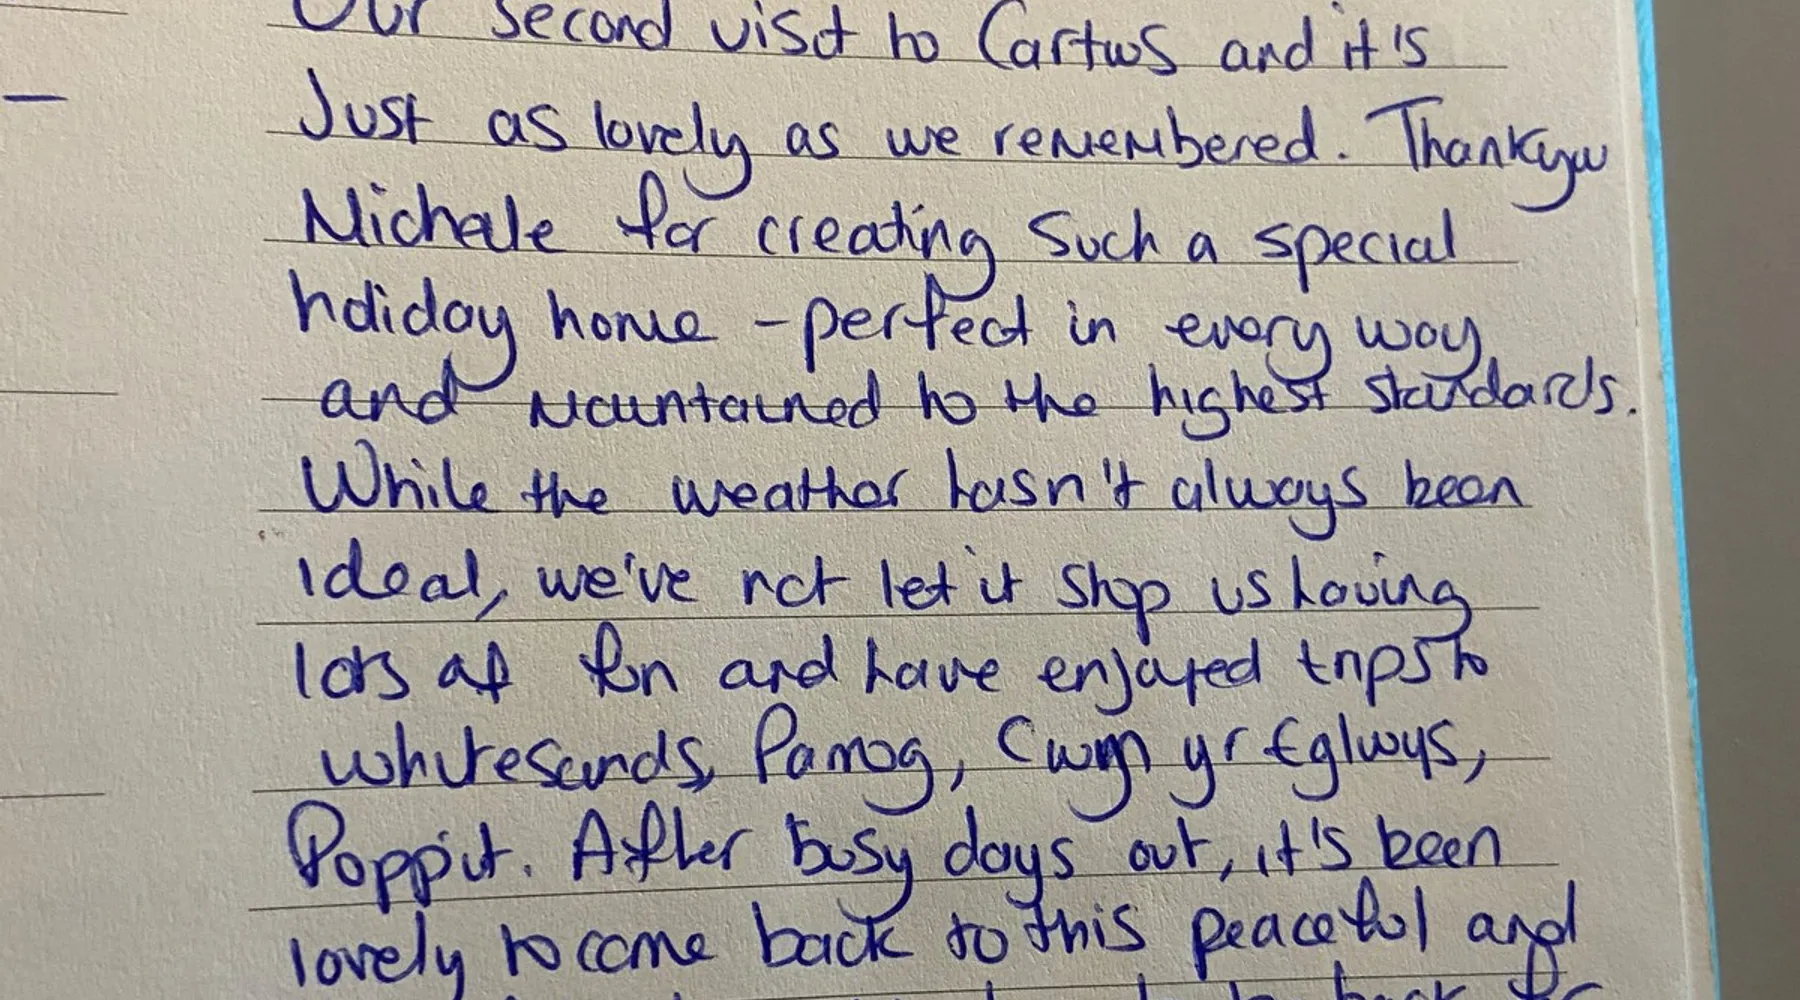 Our second visit to Cartws and it's
Just as lovely as we remembered. Thankyou
Michele for creating such a special
holiday home - perfect in every way
and maintained to the highest standards.
While the weather hasn't always been
ideal, we've not let it stop us having
lots of fun and have enjoyed trips to
Whitesands, Parrog, Cwm yr Eglwys,
Poppit. After busy days out, it's been
lovely to come back to this peaceful and
back for